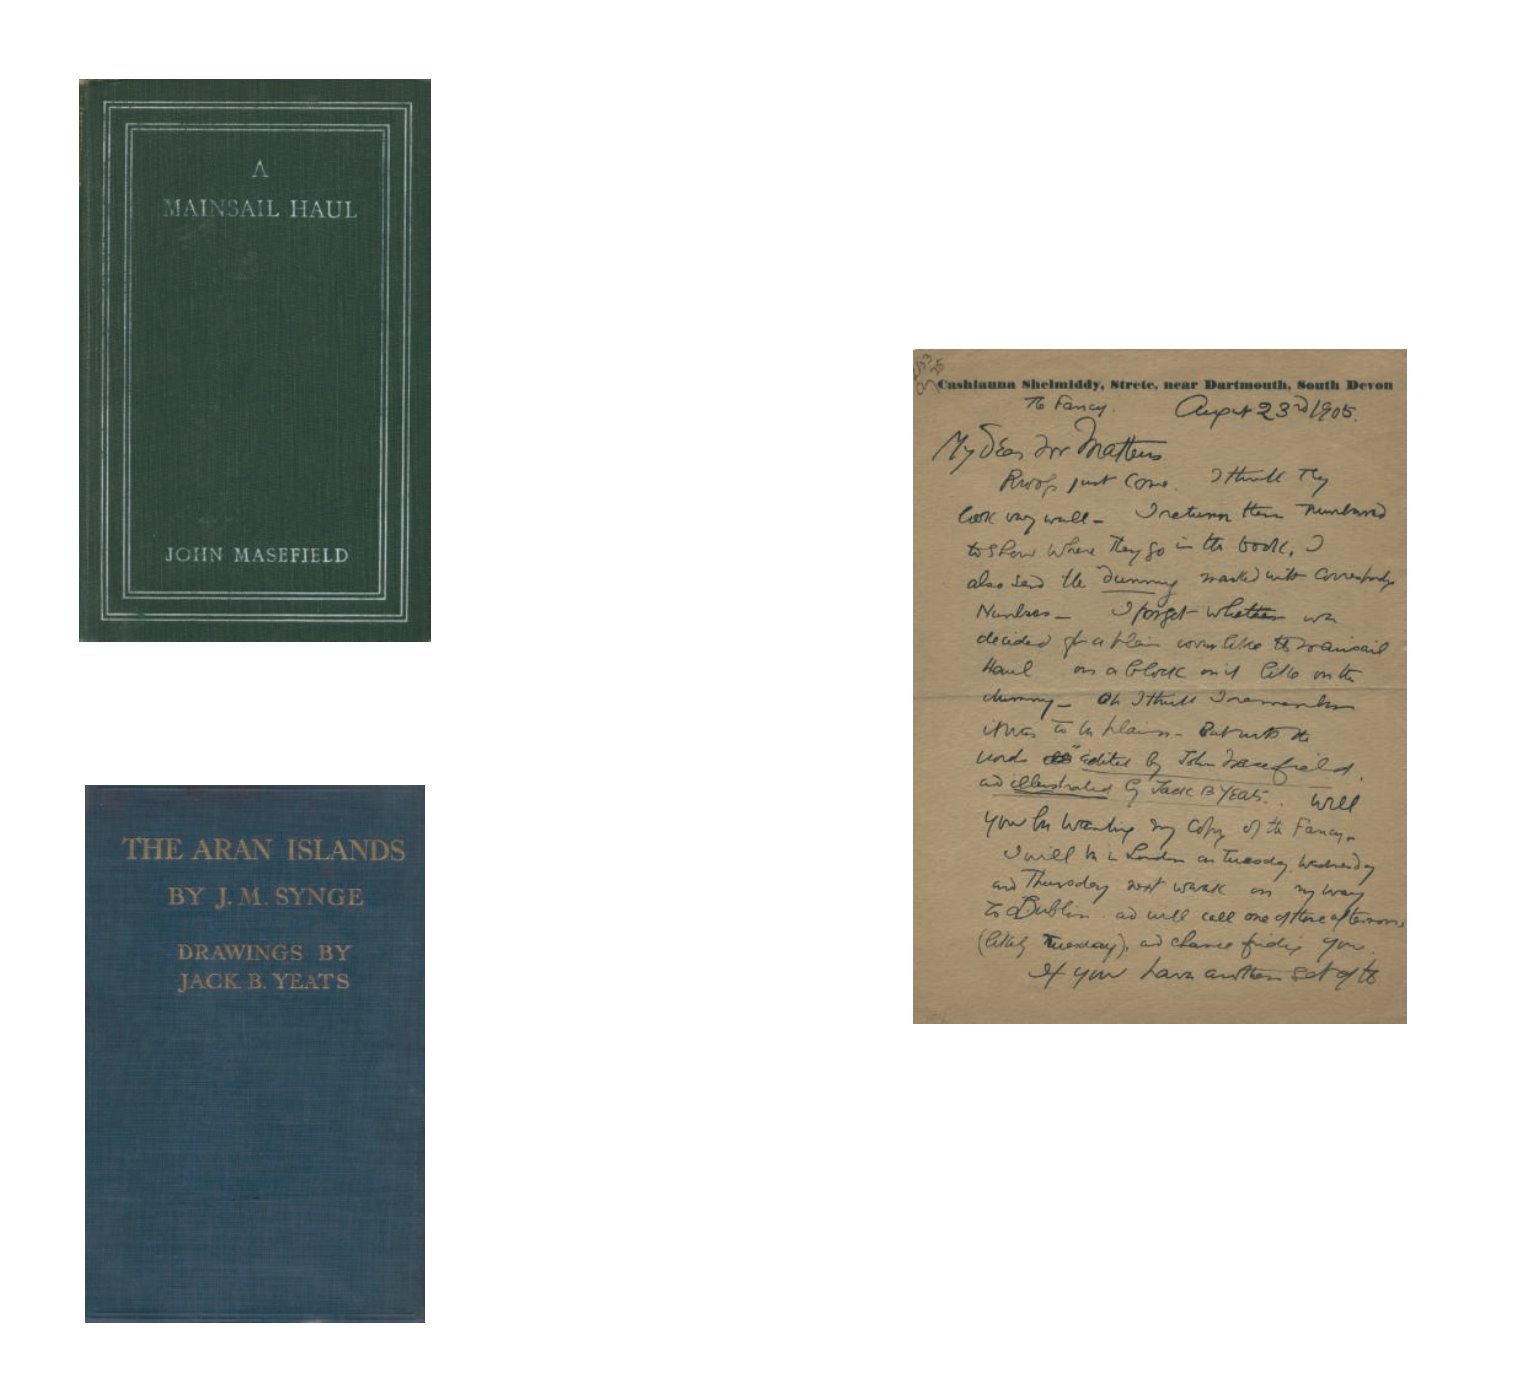 A
MAINSAIL HAUL
JOHN MASEFIELD
THE ARAN ISLANDS
BY J. M. SYNGE
DRAWINGS BY
JACK B. YEATS
Cashlauna Shelmiddy, Strete, near Dartmouth, South Devon
To Fancy. August 23rd 1905.
My Dear Mr Matthews
Proofs just come. I think they
look very well - I return them numbered
to show where they go in the book. I
also send the dummy marked with corresponding
Numbers - I forget whether we
decided for a plain cover like the mainsail
Haul or a block on it like on the
dummy - Oh I think I remember
it was to be plain - But with the
words "edited by John Masefield.
and illustrated by Jack B Yeats. Will
you be wanting my copy of the Fancy.
I will be in London on Tuesday Wednesday
and Thursday next week on my way
to Dublin and will call one of those afternoons
(likely Tuesday), and chance finding you.
If you have another set of the